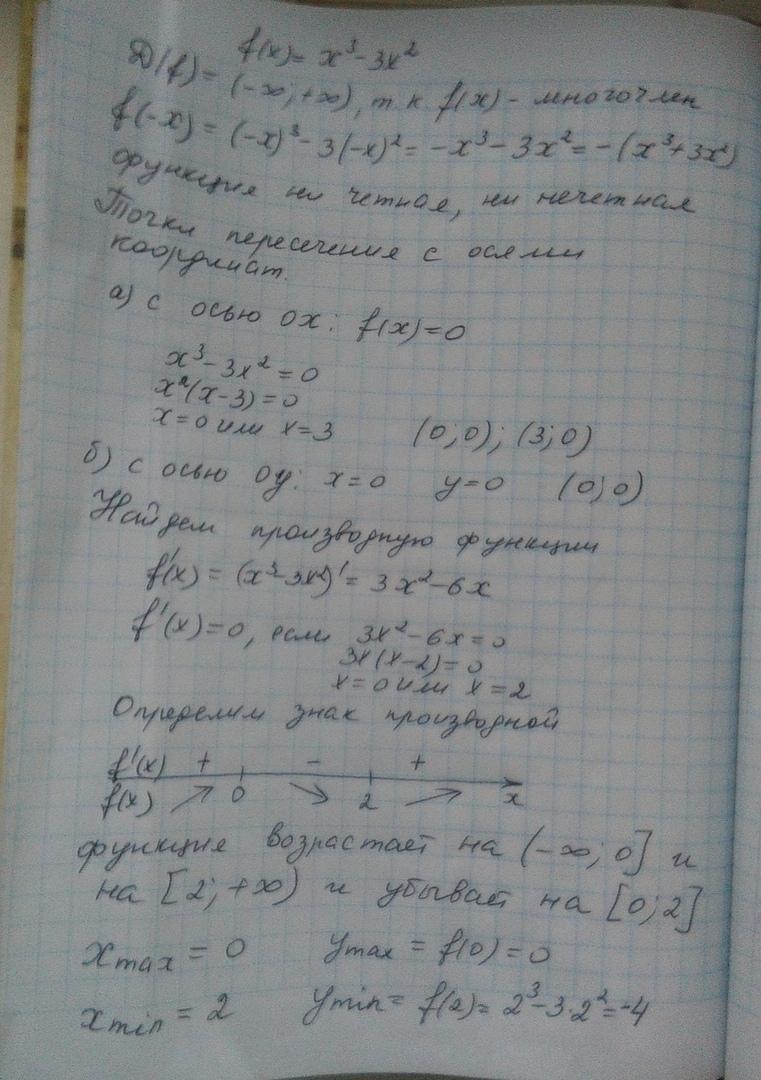 f(x) = x³ - 3x²
D(f) = (-∞; +∞), т.к. f(x) - многочлен
f(-x) = (-x)³ - 3(-x)² = -x³ - 3x² = -(x³+3x²)
функция ни четная, ни нечетная
Точки пересечения с осями
координат.
а) с осью ox: f(x)=0
x³ - 3x² = 0
x²(x-3)=0
x=0 или x=3 (0;0); (3;0)
б) с осью oy: x=0 y=0 (0;0)
Найдем производную функции
f'(x) = (x³-3x²)' = 3x²-6x
f'(x)=0, если 3x²-6x=0
3x(x-2)=0
x=0 или x=2
Определим знак производной
f'(x) + - +
f(x) ↗ 0 ↘ 2 ↗ x
функция возрастает на (-∞; 0] и
на [2; +∞) и убывает на [0; 2]
xmax = 0 ymax = f(0) = 0
xmin = 2 ymin = f(2) = 2³-3·2²=-4